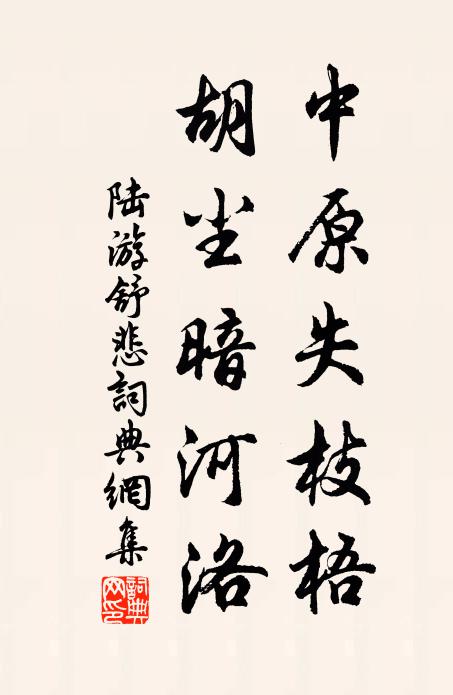 中原失枝梧
胡尘暗河洛
陆游舒悲詞典網集
詞典网印